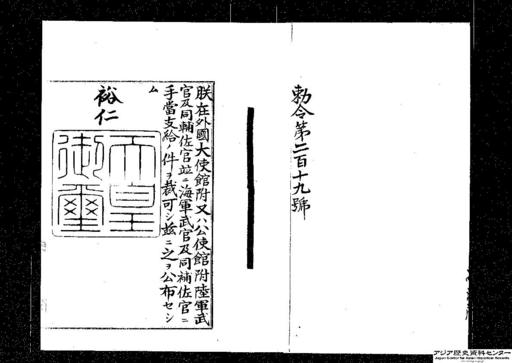 勅令第二百十九號
朕在外國大使館附又ハ公使館附陸軍武
官及同輔佐官竝ニ海軍武官及同補佐官ニ
手當支給ノ件ヲ裁可シ茲ニ之ヲ公布セシ
ム
裕仁
天皇
御璽
アジア歴史資料センター
Japan Center for Asian Historical Records